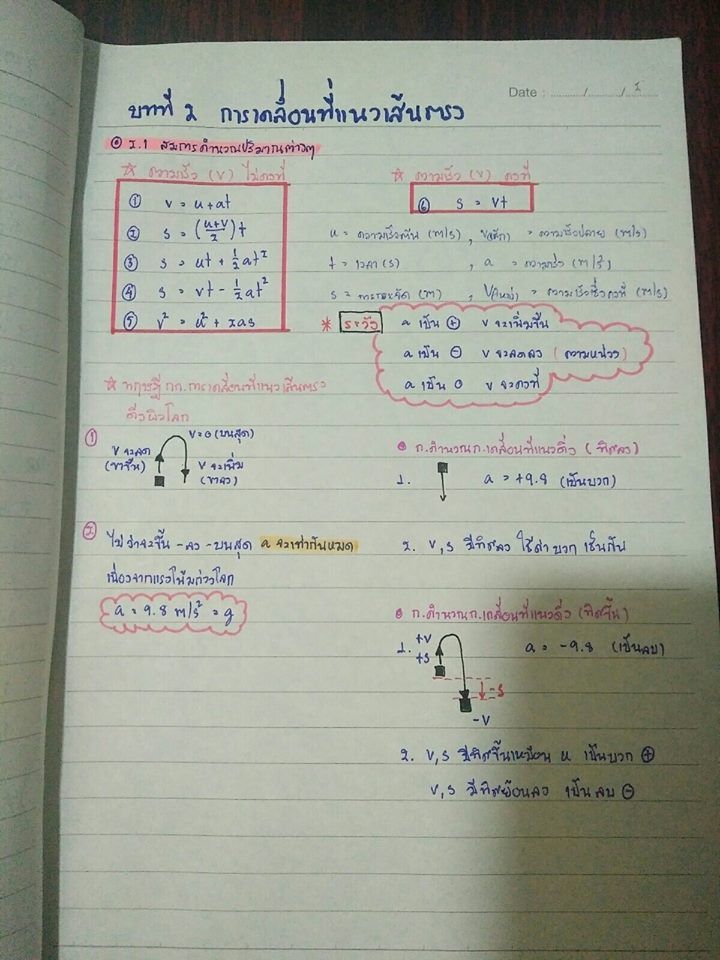 Date : ......../......../........
1
บทที่ 2 การเคลื่อนที่แนวเส้นตรง
2.1 สมการคำนวณปริมาณต่างๆ
☆ ความเร็ว (v) ไม่คงที่
① v = u + at
② s = (u+v/2)t
③ s = ut + 1/2 at²
④ s = vt - 1/2 at²
⑤ v² = u² + 2as
☆ ความเร็ว (v) คงที่
⑥ s = vt
u = ความเร็วต้น (m/s) , v = ความเร็วปลาย (m/s)
t = เวลา (s) , a = ความเร่ง (m/s²)
s = การกระจัด (m) , v = ความเร็วซึ่งคงที่ (m/s)
* ระวัง
a เป็น ⊕ v จะเพิ่มขึ้น
a เป็น ⊖ v จะลดลง (ความหน่วง)
a เป็น 0 v จะคงที่
☆ ทฤษฎี กก.การเคลื่อนที่แนวเส้นตรง
ดิ่งผิวโลก
①
v=0 (บนสุด)
v จะลด
(ขาขึ้น)
v จะเพิ่ม
(ขาลง)
② ไม่ว่าจะขึ้น -ลง -บนสุด a จะเท่ากันหมด
เนื่องจากแรงโน้มถ่วงโลก
a = 9.8 m/s² = g
ก.คำนวณก.เคลื่อนที่แนวดิ่ง (ทิศลง)
1. a = +9.8 (เป็นบวก)
2. v,s มีทิศลง ใช้ค่า บวก เช่นกัน
ก.คำนวณก.เคลื่อนที่แนวดิ่ง (ทิศขึ้น)
1. +v
+s
a = -9.8 (เป็นลบ)
-s
-v
2. v,s มีทิศขึ้นเหมือน u เป็นบวก ⊕
v,s มีทิศย้อนลง เป็นลบ ⊖